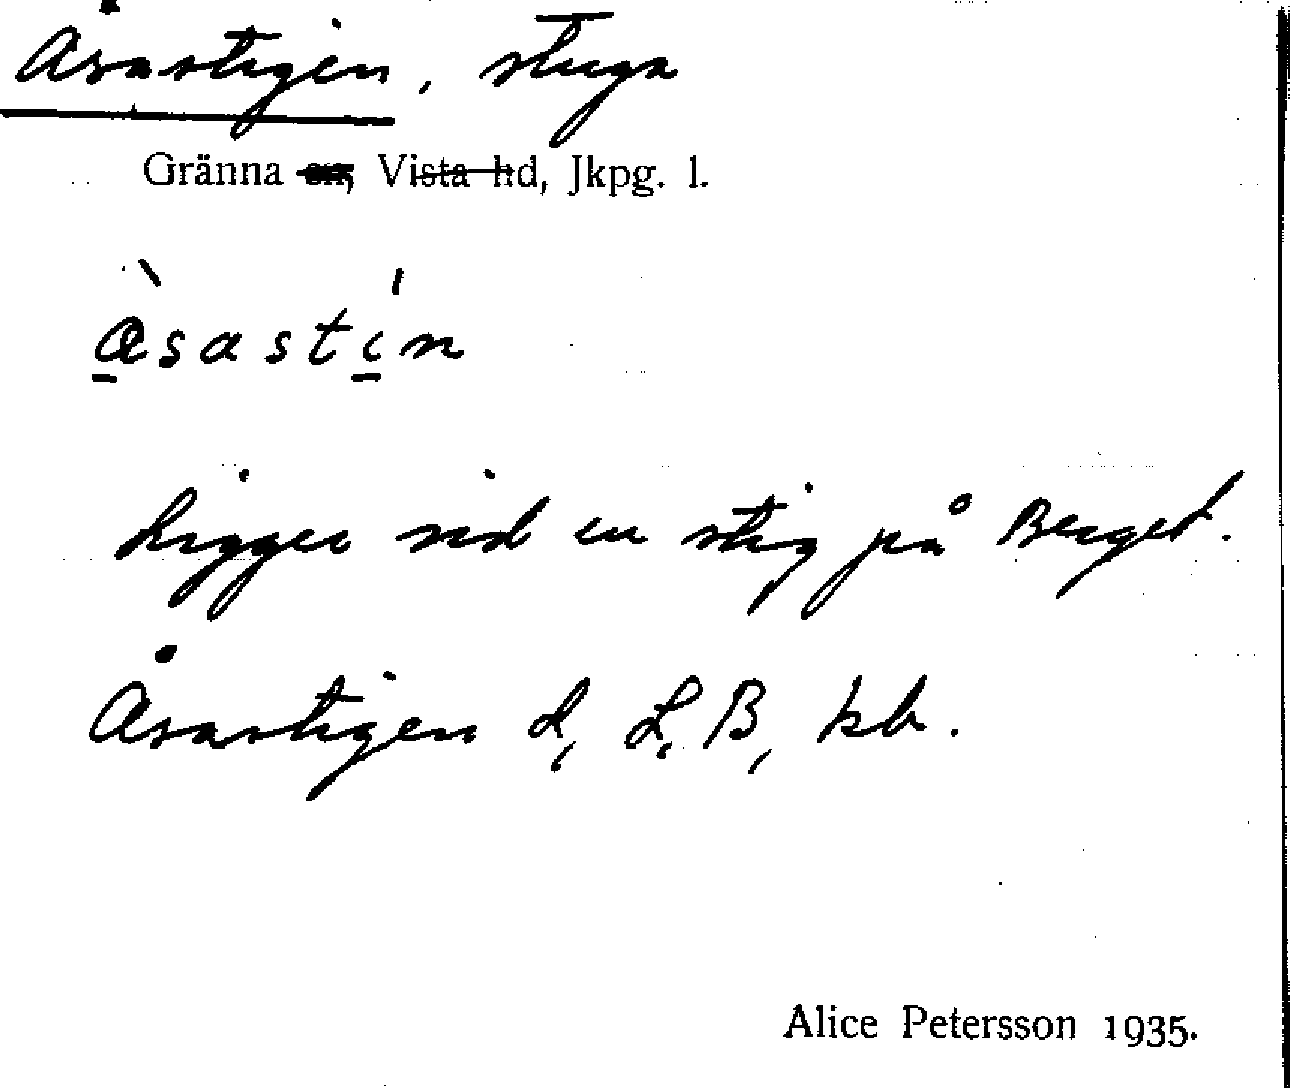 Åsastigen, stuga
Gränna sn, Vista hd, Jkpg. l.
åsastin
Ligger vid en stig på Berget.
Åsastigen d, L, B, kb.
Alice Petersson 1935.